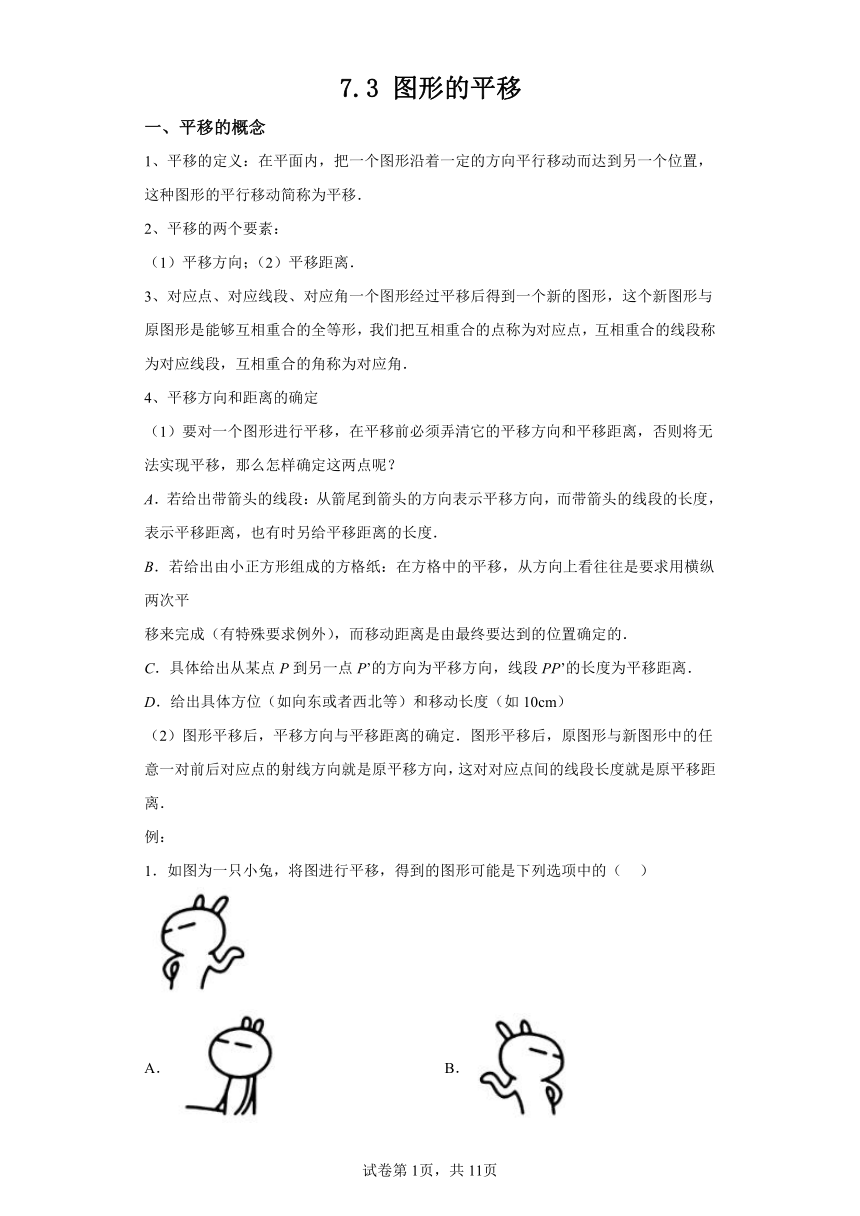 7.3 图形的平移
一、平移的概念
1、平移的定义：在平面内，把一个图形沿着一定的方向平行移动而达到另一个位置，
这种图形的平行移动简称为平移．
2、平移的两个要素：
（1）平移方向；（2）平移距离．
3、对应点、对应线段、对应角一个图形经过平移后得到一个新的图形，这个新图形与
原图形是能够互相重合的全等形，我们把互相重合的点称为对应点，互相重合的线段称
为对应线段，互相重合的角称为对应角．
4、平移方向和距离的确定
（1）要对一个图形进行平移，在平移前必须弄清它的平移方向和平移距离，否则将无
法实现平移，那么怎样确定这两点呢？
A．若给出带箭头的线段：从箭尾到箭头的方向表示平移方向，而带箭头的线段的长度，
表示平移距离，也有时另给平移距离的长度．
B．若给出由小正方形组成的方格纸：在方格中的平移，从方向上看往往是要求用横纵
两次平
移来完成（有特殊要求例外），而移动距离是由最终要达到的位置确定的．
C．具体给出从某点 P 到另一点 P’的方向为平移方向，线段 PP’的长度为平移距离．
D．给出具体方位（如向东或者西北等）和移动长度（如 10cm）
（2）图形平移后，平移方向与平移距离的确定．图形平移后，原图形与新图形中的任
意一对前后对应点的射线方向就是原平移方向，这对对应点间的线段长度就是原平移距
离．
例：
1．如图为一只小兔，将图进行平移，得到的图形可能是下列选项中的（ ）
A． B．
试卷第 1页，共 11页